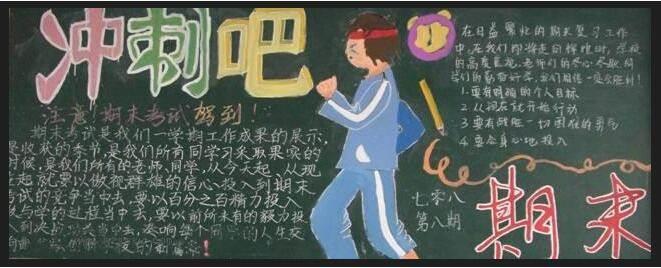 冲刺吧
注意！期末考试驾到！
期末考试是我们一学期工作成果的展示，
是收获的季节，是我们所有同学习采取果实的
时候，是我们所有的老师，同学，从今天起、从现
在起就要以傲视群雄的信心投入到期末
考试的竞争当中去，要以百分之百精力投入
教与学的过程当中去，要以前所未有的毅力投
入到决战
当中去，奏响每个同学的人生交
在日益繁忙的期末复习工作
中，在我们即将走向辉煌时，学校
的高度重视，老师们的尽心尽职
1 要有明确的个人目标
2 从现在就开始行动
3 要有战胜一切困难的勇气
4 要全身心地投入
七零八
第八期
期末